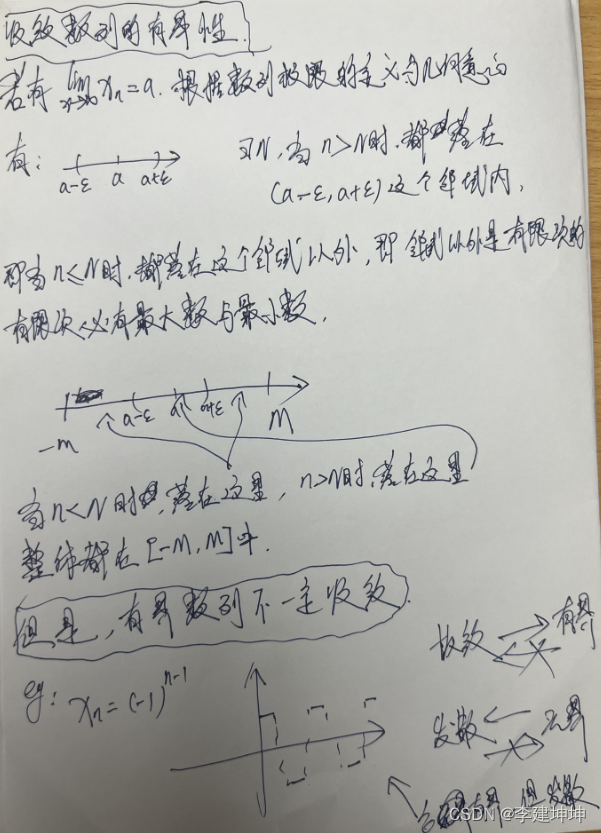 收敛数列的有界性.
若有 lim xₙ = a. 根据数列极限的定义与几何意义
x→∞
有: a-ε a a+ε ∃N, 当 n>N时. 都落在
(a-ε, a+ε) 这个邻域内,
即当 n≤N时. 都落在这个邻域以外, 即邻域以外是有限次的
有限次必有最大数与最小数.
-M a-ε a a+ε M
当 n<N时, 落在这里, n>N时, 落在这里
整体都在 [-M, M]中.
但是, 有界数列不一定收敛.
eg: xₙ = (-1)ⁿ⁻¹
收敛 有界
发散 无界
有界 但发散
CSDN @李建坤坤